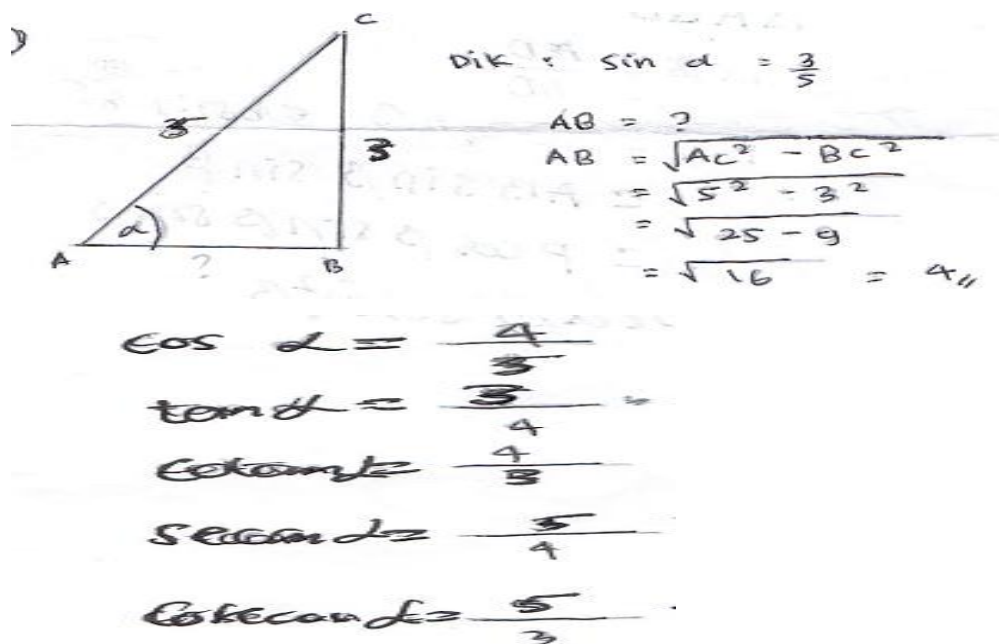 )
C
Dik : sin α = 3/5
5
3
AB = ?
AB = √AC² - BC²
= √5² - 3²
= √25 - 9
α
A ? B
= √16 = 4,,
cos α = 4/5
tan α = 3/4
cotan α = 4/3
secan α = 5/4
cosecan α = 5/3